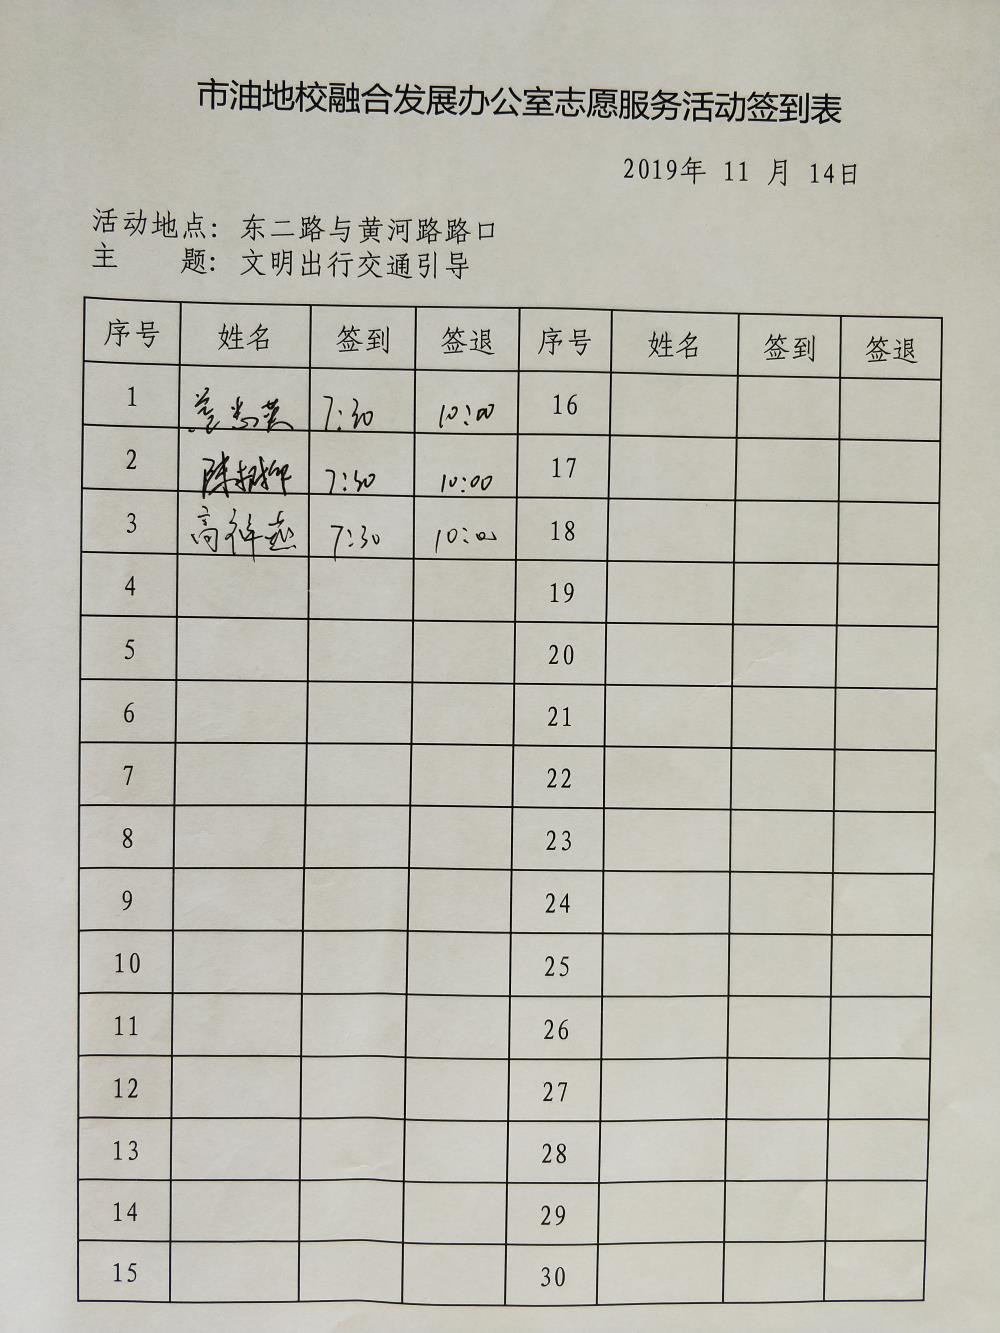 市油地校融合发展办公室志愿服务活动签到表
2019年 11 月 14日
活动地点: 东二路与黄河路路口
主 题: 文明出行交通引导
序号 姓名 签到 签退 序号 姓名 签到 签退
1 7:30 10:00 16
2 陈树柳 7:30 10:00 17
3 高祥燕 7:30 10:00 18
4 19
5 20
6 21
7 22
8 23
9 24
10 25
11 26
12 27
13 28
14 29
15 30